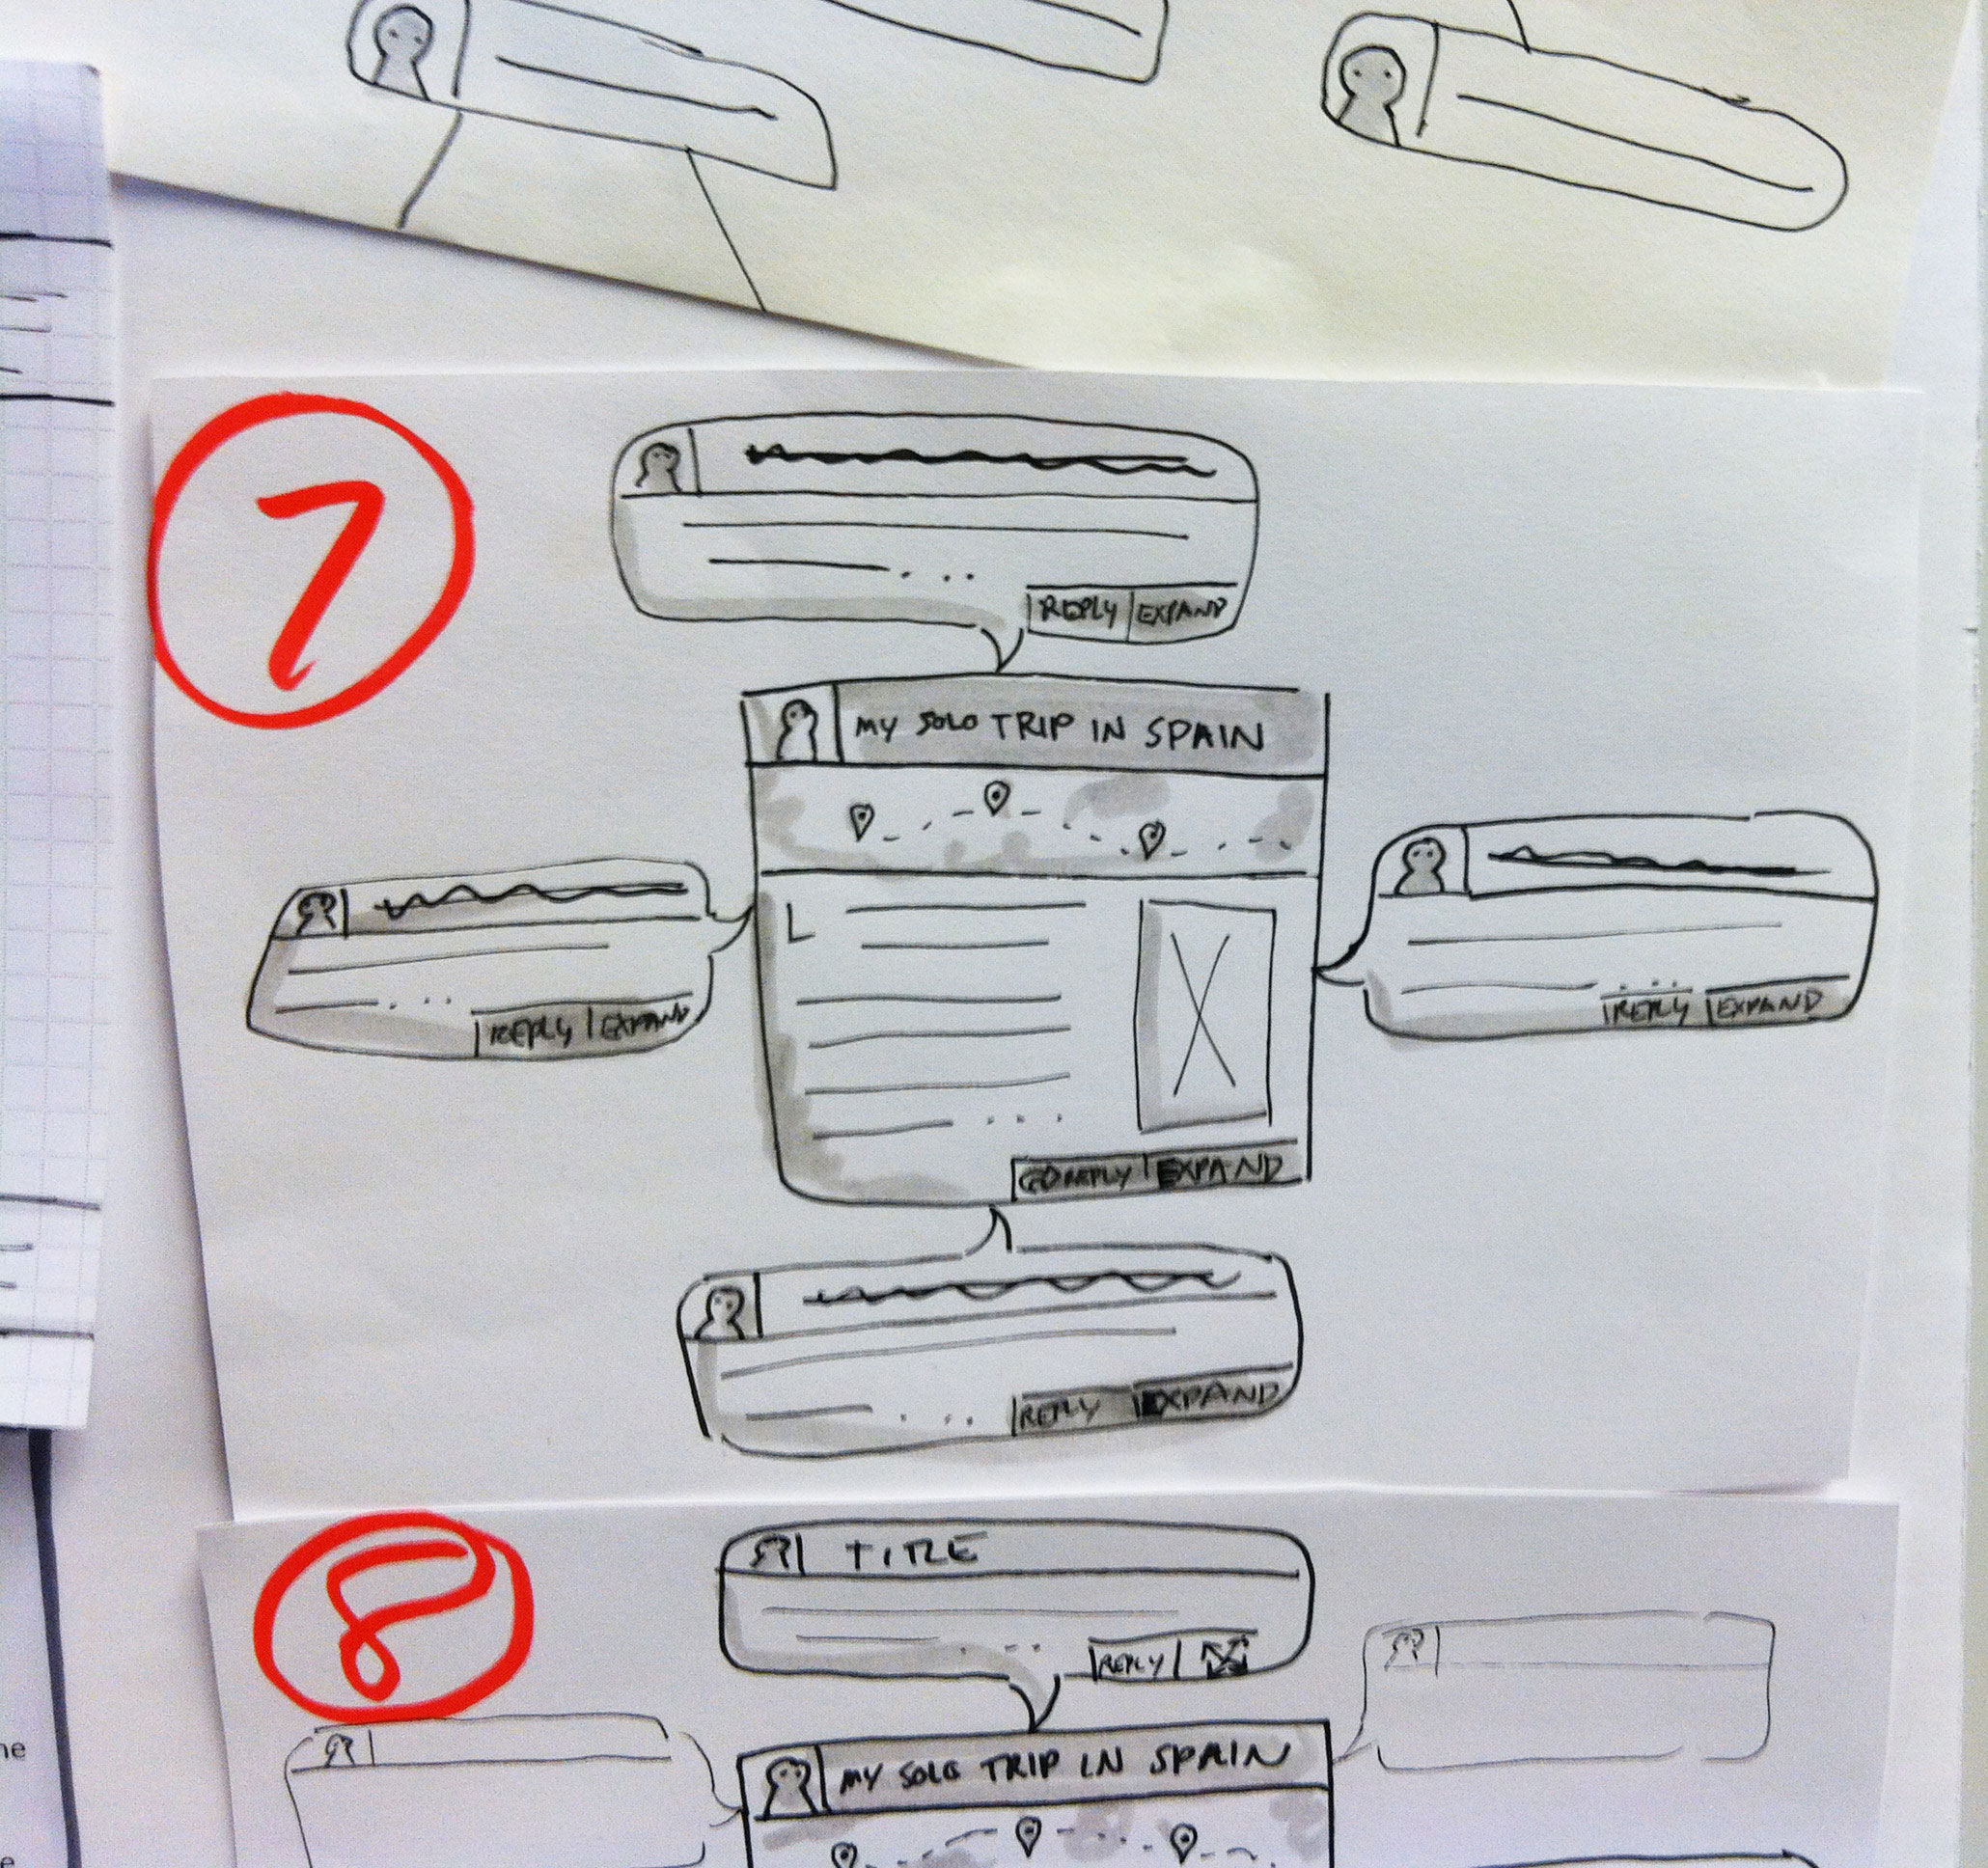 7
REPLY EXPAND
MY SOLO TRIP IN SPAIN
REPLY EXPAND
REPLY EXPAND
REPLY EXPAND
REPLY EXPAND
8
TITLE
REPLY
MY SOLO TRIP IN SPAIN
he
e